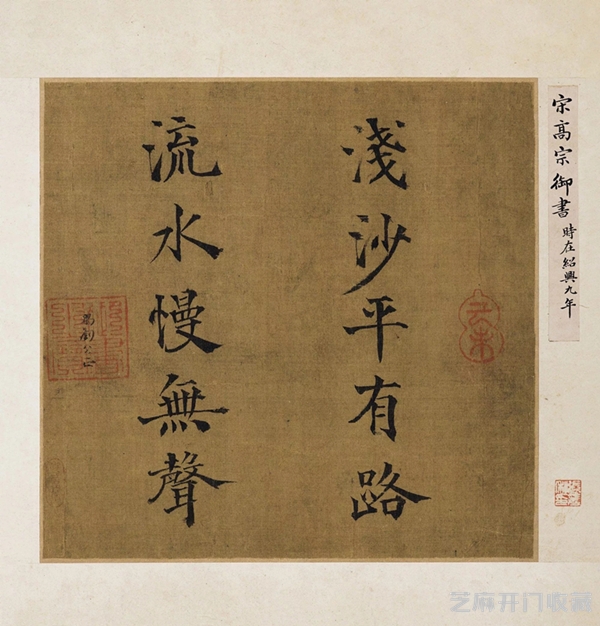 宋髙宗御書時在紹興九年
淺沙平有路
流水慢無聲
芝麻开门收藏